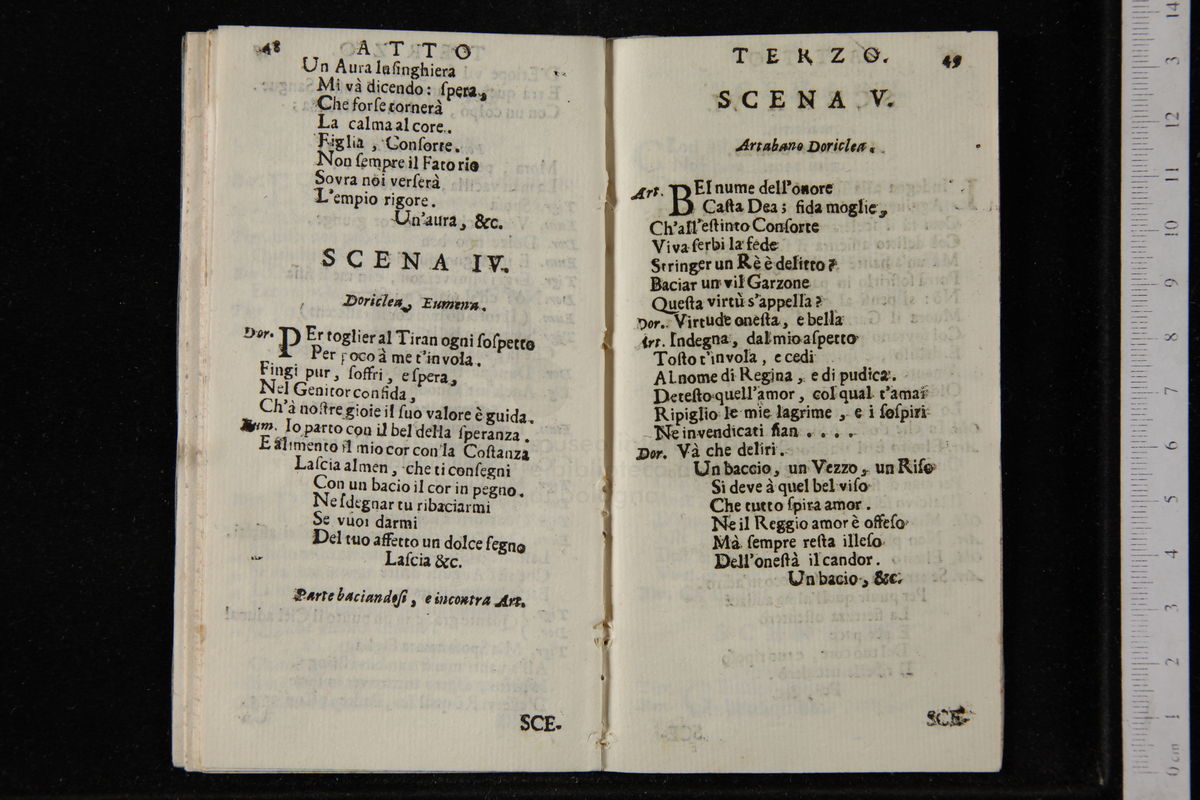 48 ATTO
Un Aura lusinghiera
Mi và dicendo: spera,
Che forse tornerà
La calma al core.
Figlia, Consorte.
Non sempre il Fato rio
Sovra noi verserà
L'empio rigore.
Un'aura, &c.
SCENA IV.
Doriclea, Eumena.
Dor. PEr toglier al Tiran ogni sospetto
Per poco à me t'invola.
Fingi pur, soffri, e spera,
Nel Genitor confida,
Ch'à nostre gioie il suo valore è guida.
Eum. Io parto con il bel della speranza.
E alimento il mio cor con la Costanza
Lascia almen, che ti consegni
Con un bacio il cor in pegno.
Ne sdegnar tu ribaciarmi
Se vuoi darmi
Del tuo affetto un dolce segno
Lascia &c.
Parte baciandosi, e incontra Art.
SCE-
TERZO. 49
SCENA V.
Artabano Doriclea.
Art. BEl nume dell'onore
Casta Dea; fida moglie,
Ch'all'estinto Consorte
Viva serbi la fede
Stringer un Rè è delitto?
Baciar un vil Garzone
Questa virtù s'appella?
Dor. Virtude onesta, e bella
Art. Indegna, dal mio aspetto
Tosto t'invola, e cedi
Al nome di Regina, e di pudica.
Detesto quell'amor, col qual t'amai
Ripiglio le mie lagrime, e i sospiri
Ne invendicati fian . . . .
Dor. Và che deliri.
Un baccio, un Vezzo, un Riso
Si deve à quel bel viso
Che tutto spira amor.
Ne il Reggio amor è offeso
Mà sempre resta illeso
Dell'onestà il candor.
Un bacio, &c.
SCE-
14
13
12
11
10
9
8
7
6
5
4
3
2
1
0 cm